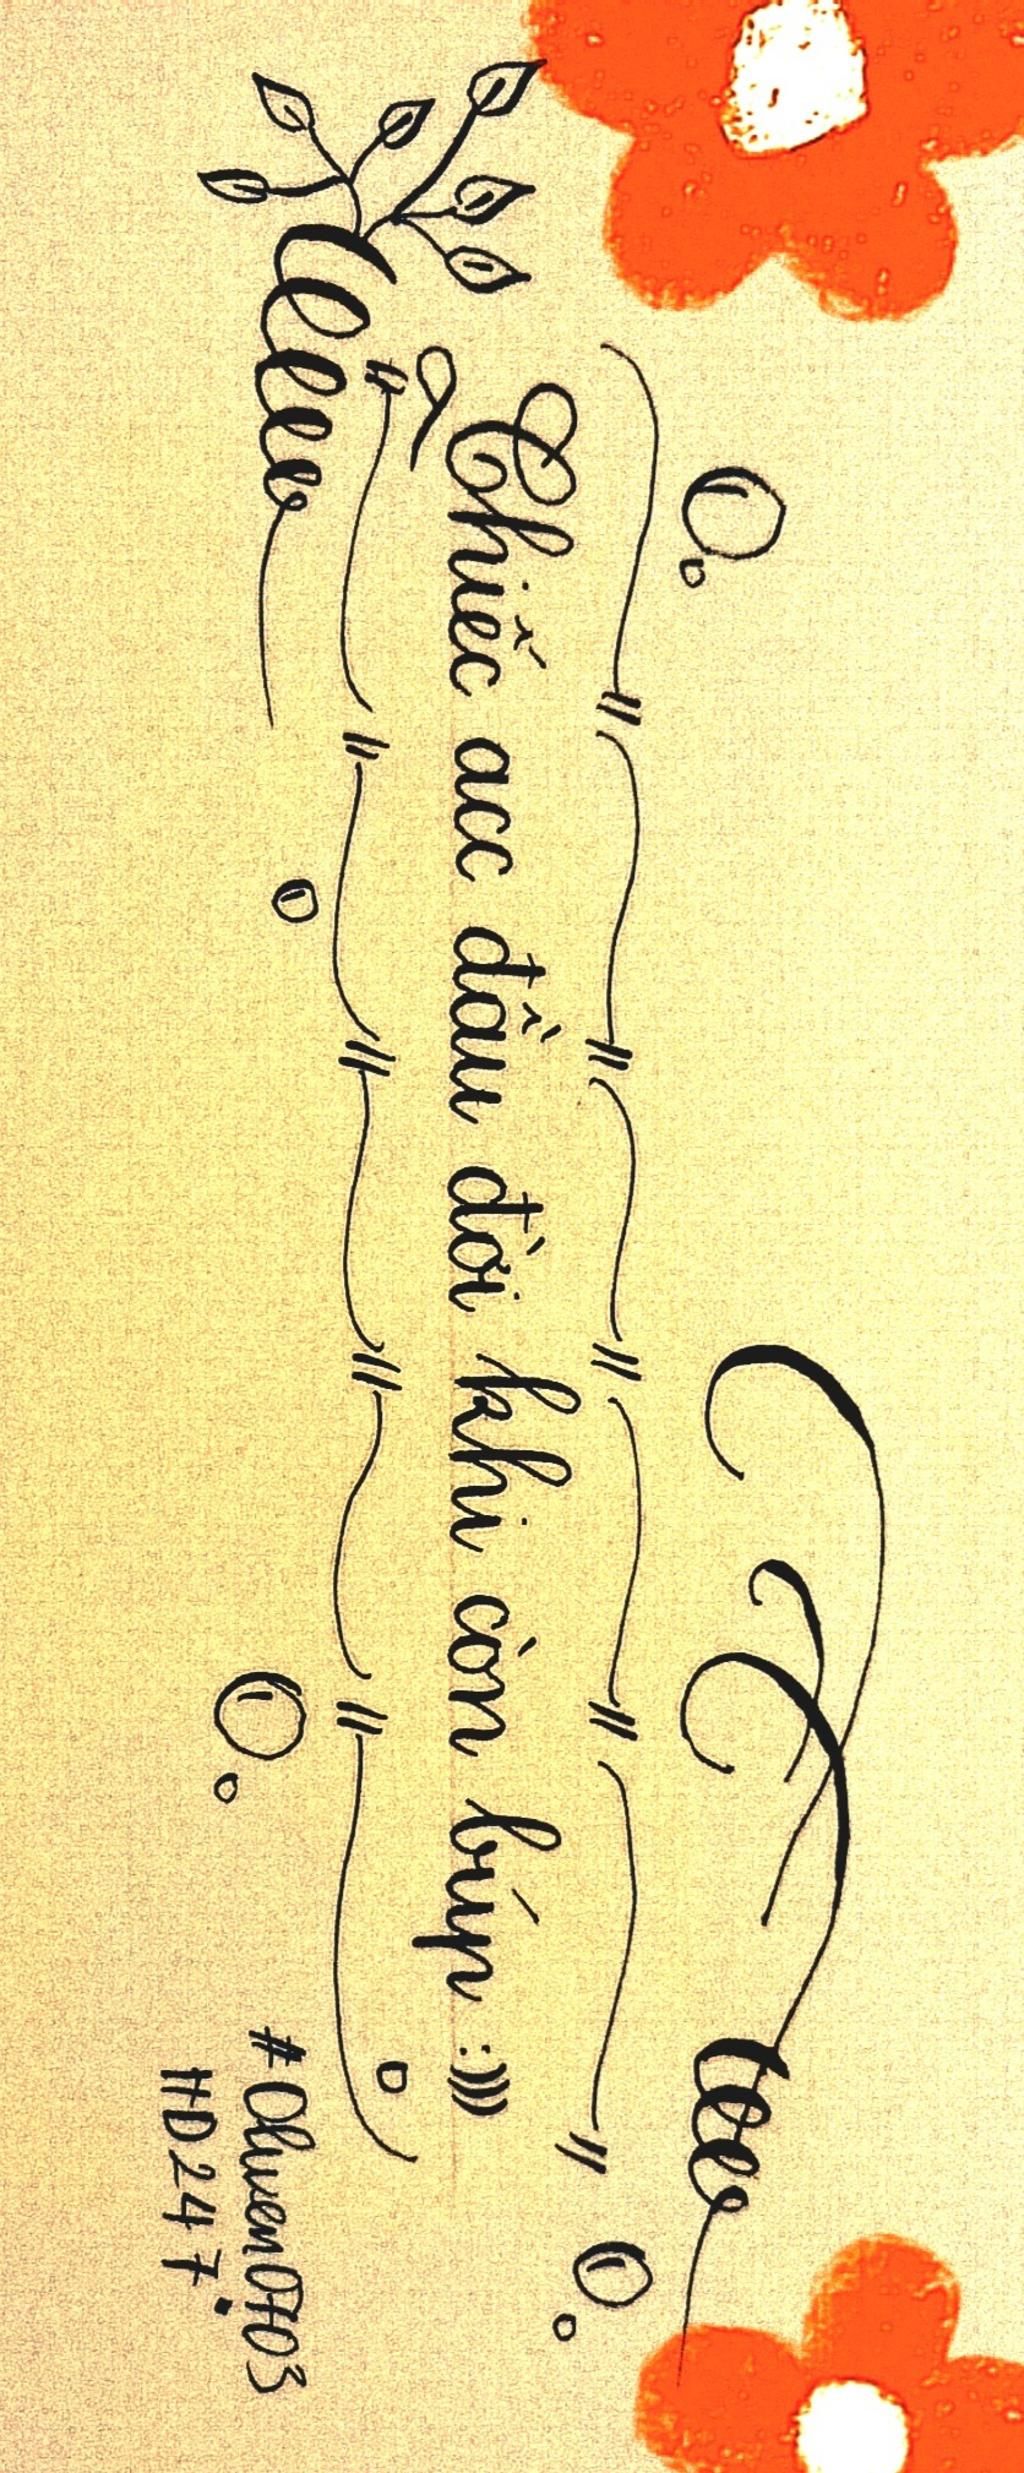 Chiếc acc đầu đời khi còn búp :)))
#OhuenOHO3
HD247.